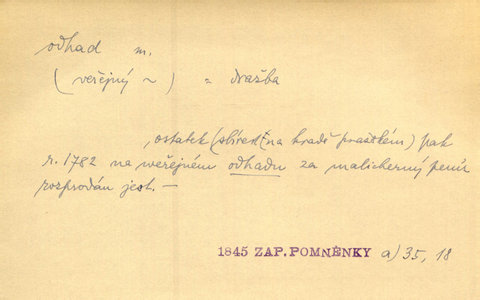 odhad m.
(veřejný ~) = dražba
, ostatek (sbírek na hradě pražském) pak
r. 1782 na weřejném odhadu za malicherný peníz
rozprodán jest. —
1845 ZAP. POMNĚNKY a) 35, 18